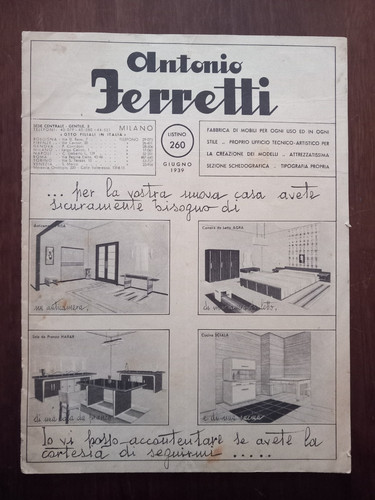 Antonio
Ferretti
SEDE CENTRALE - GENTILE, 3
TELEFONI: MILANO
"OTTO FILIALI IN ITALIA"
LISTINO
260
GIUGNO
1939
FABBRICA DI MOBILI PER OGNI USO ED IN OGNI
STILE - PROPRIO UFFICIO TECNICO-ARTISTICO PER
LA CREAZIONE DEI MODELLI - ATTREZZATISSIMA
SEZIONE SCENOGRAFICA - TIPOGRAFIA PROPRIA
... per la vostra nuova casa avete
sicuramente bisogno di
Camera da letto AGRA
un'anticamera,
di una camera da letto,
Sala da Pranzo HARAR
Cucina SCIALA
di una sala da pranzo
e di una cucina
Io vi posso accontentare se avete la
cortesia di seguirmi .....